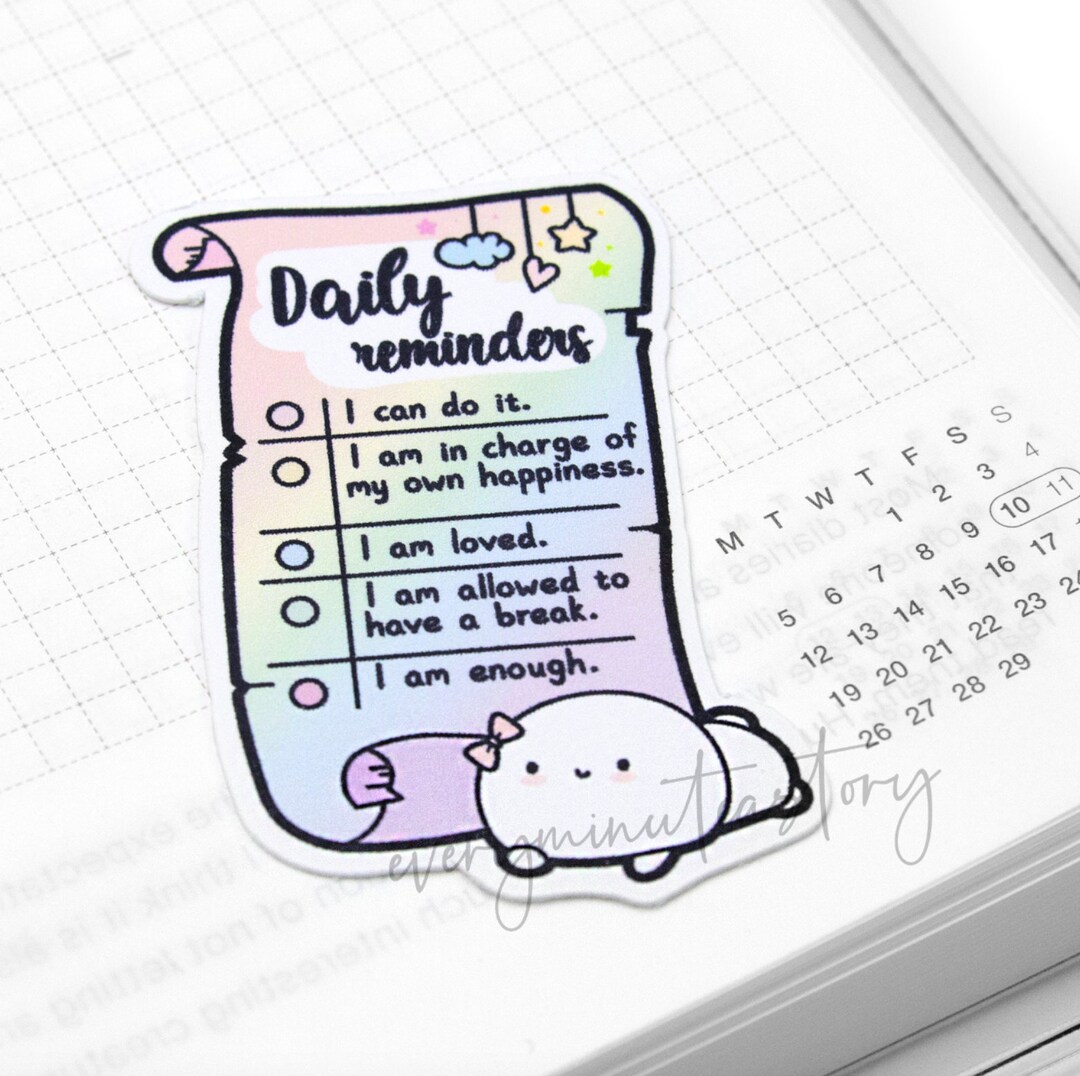 Daily
reminders
I can do it.
I am in charge of
my own happiness.
I am loved.
I am allowed to
have a break.
I am enough.
M T W T F S S
1 2 3 4
5 6 7 8 9 10 11
12 13 14 15 16 17
19 20 21 22 23 24
26 27 28 29
everyminuteastory